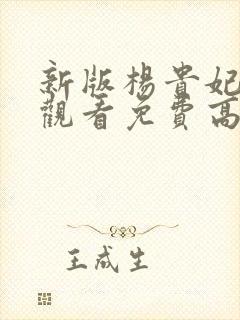 新版楊貴妃
觀看免費高
王成生